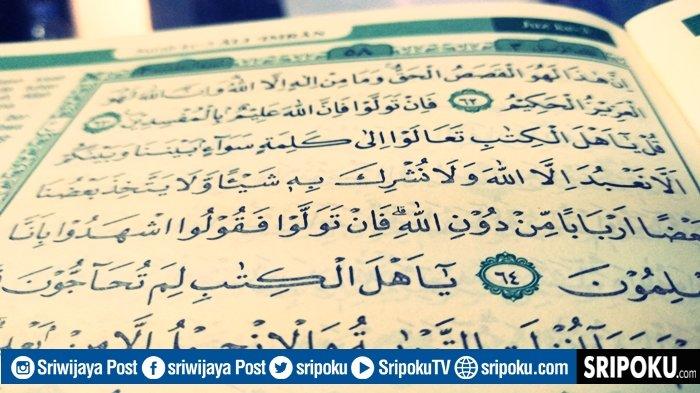 Surah Ke-3 ALI 'IMRAN ٥٨ Juz Ke-3
اِنَّ هٰذَا لَهُوَ الْقَصَصُ الْحَقُّ ۚ وَمَا مِنْ اِلٰهٍ اِلَّا اللّٰهُ ۗوَاِنَّ اللّٰهَ لَهُوَ
الْعَزِيْزُ الْحَكِيْمُ ٦٢ فَاِنْ تَوَلَّوْا فَاِنَّ اللّٰهَ عَلِيْمٌ ۢبِالْمُفْسِدِيْنَ ٦٣
قُلْ يٰٓاَهْلَ الْكِتٰبِ تَعَالَوْا اِلٰى كَلِمَةٍ سَوَاۤءٍۢ بَيْنَنَا وَبَيْنَكُمْ
اَلَّا نَعْبُدَ اِلَّا اللّٰهَ وَلَا نُشْرِكَ بِهٖ شَيْـًٔا وَّلَا يَتَّخِذَ بَعْضُنَا
بَعْضًا اَرْبَابًا مِّنْ دُوْنِ اللّٰهِ ۗ فَاِنْ تَوَلَّوْا فَقُوْلُوا اشْهَدُوْا بِاَنَّا
مُسْلِمُوْنَ ٦٤ يٰٓاَهْلَ الْكِتٰبِ لِمَ تُحَاۤجُّوْنَ
اُنْزِلَتِ التَّوْرٰىةُ وَالْاِنْجِيْلُ اِلَّا مِنْۢ
Sriwijaya Post sriwijaya Post sripoku SripokuTV sripoku.com SRIPOKU.com